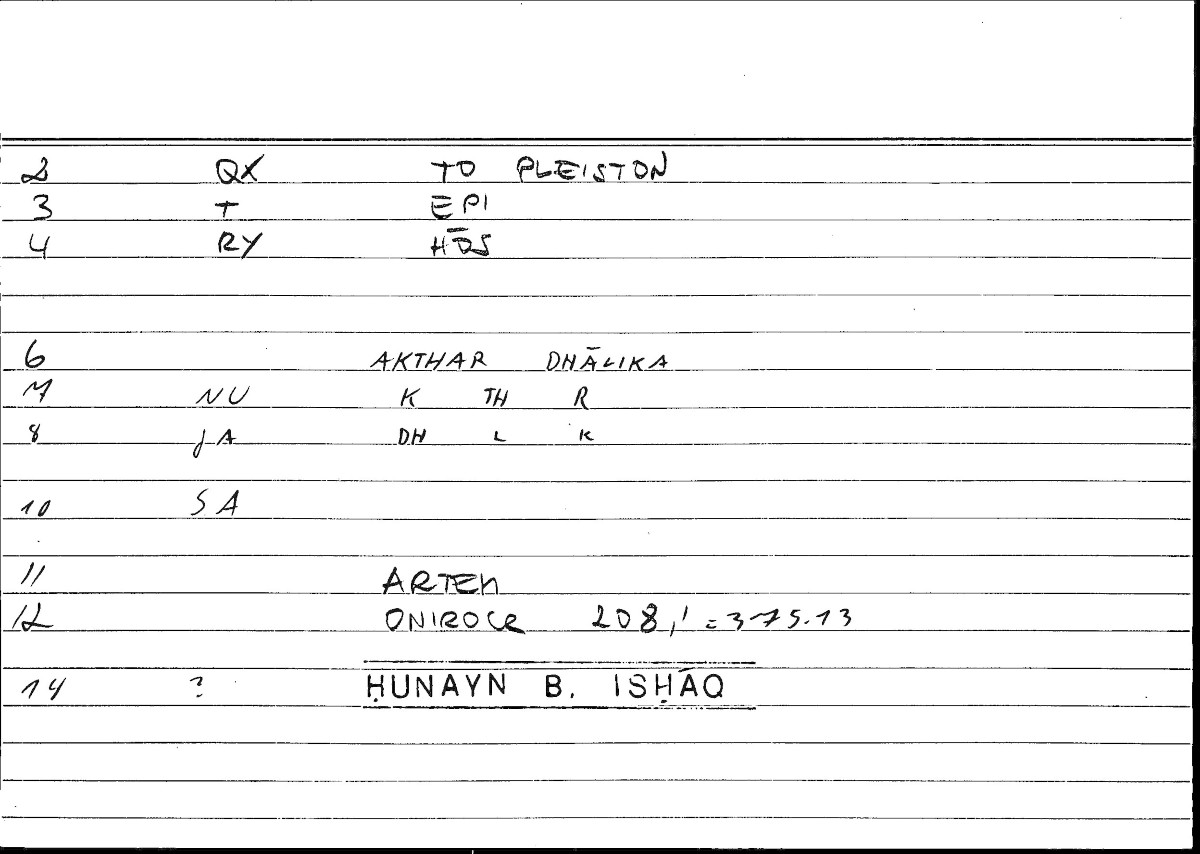 2 QX TO PLEISTON
3 T EPI
4 RY HŌS
6 AKTHAR DHĀLIKA
7 NU K TH R
8 JA DH L K
10 SA
11 ARTEM
12 ONIROCR 208,1 = 375.13
14 ? ḤUNAYN B. ISḤĀQ